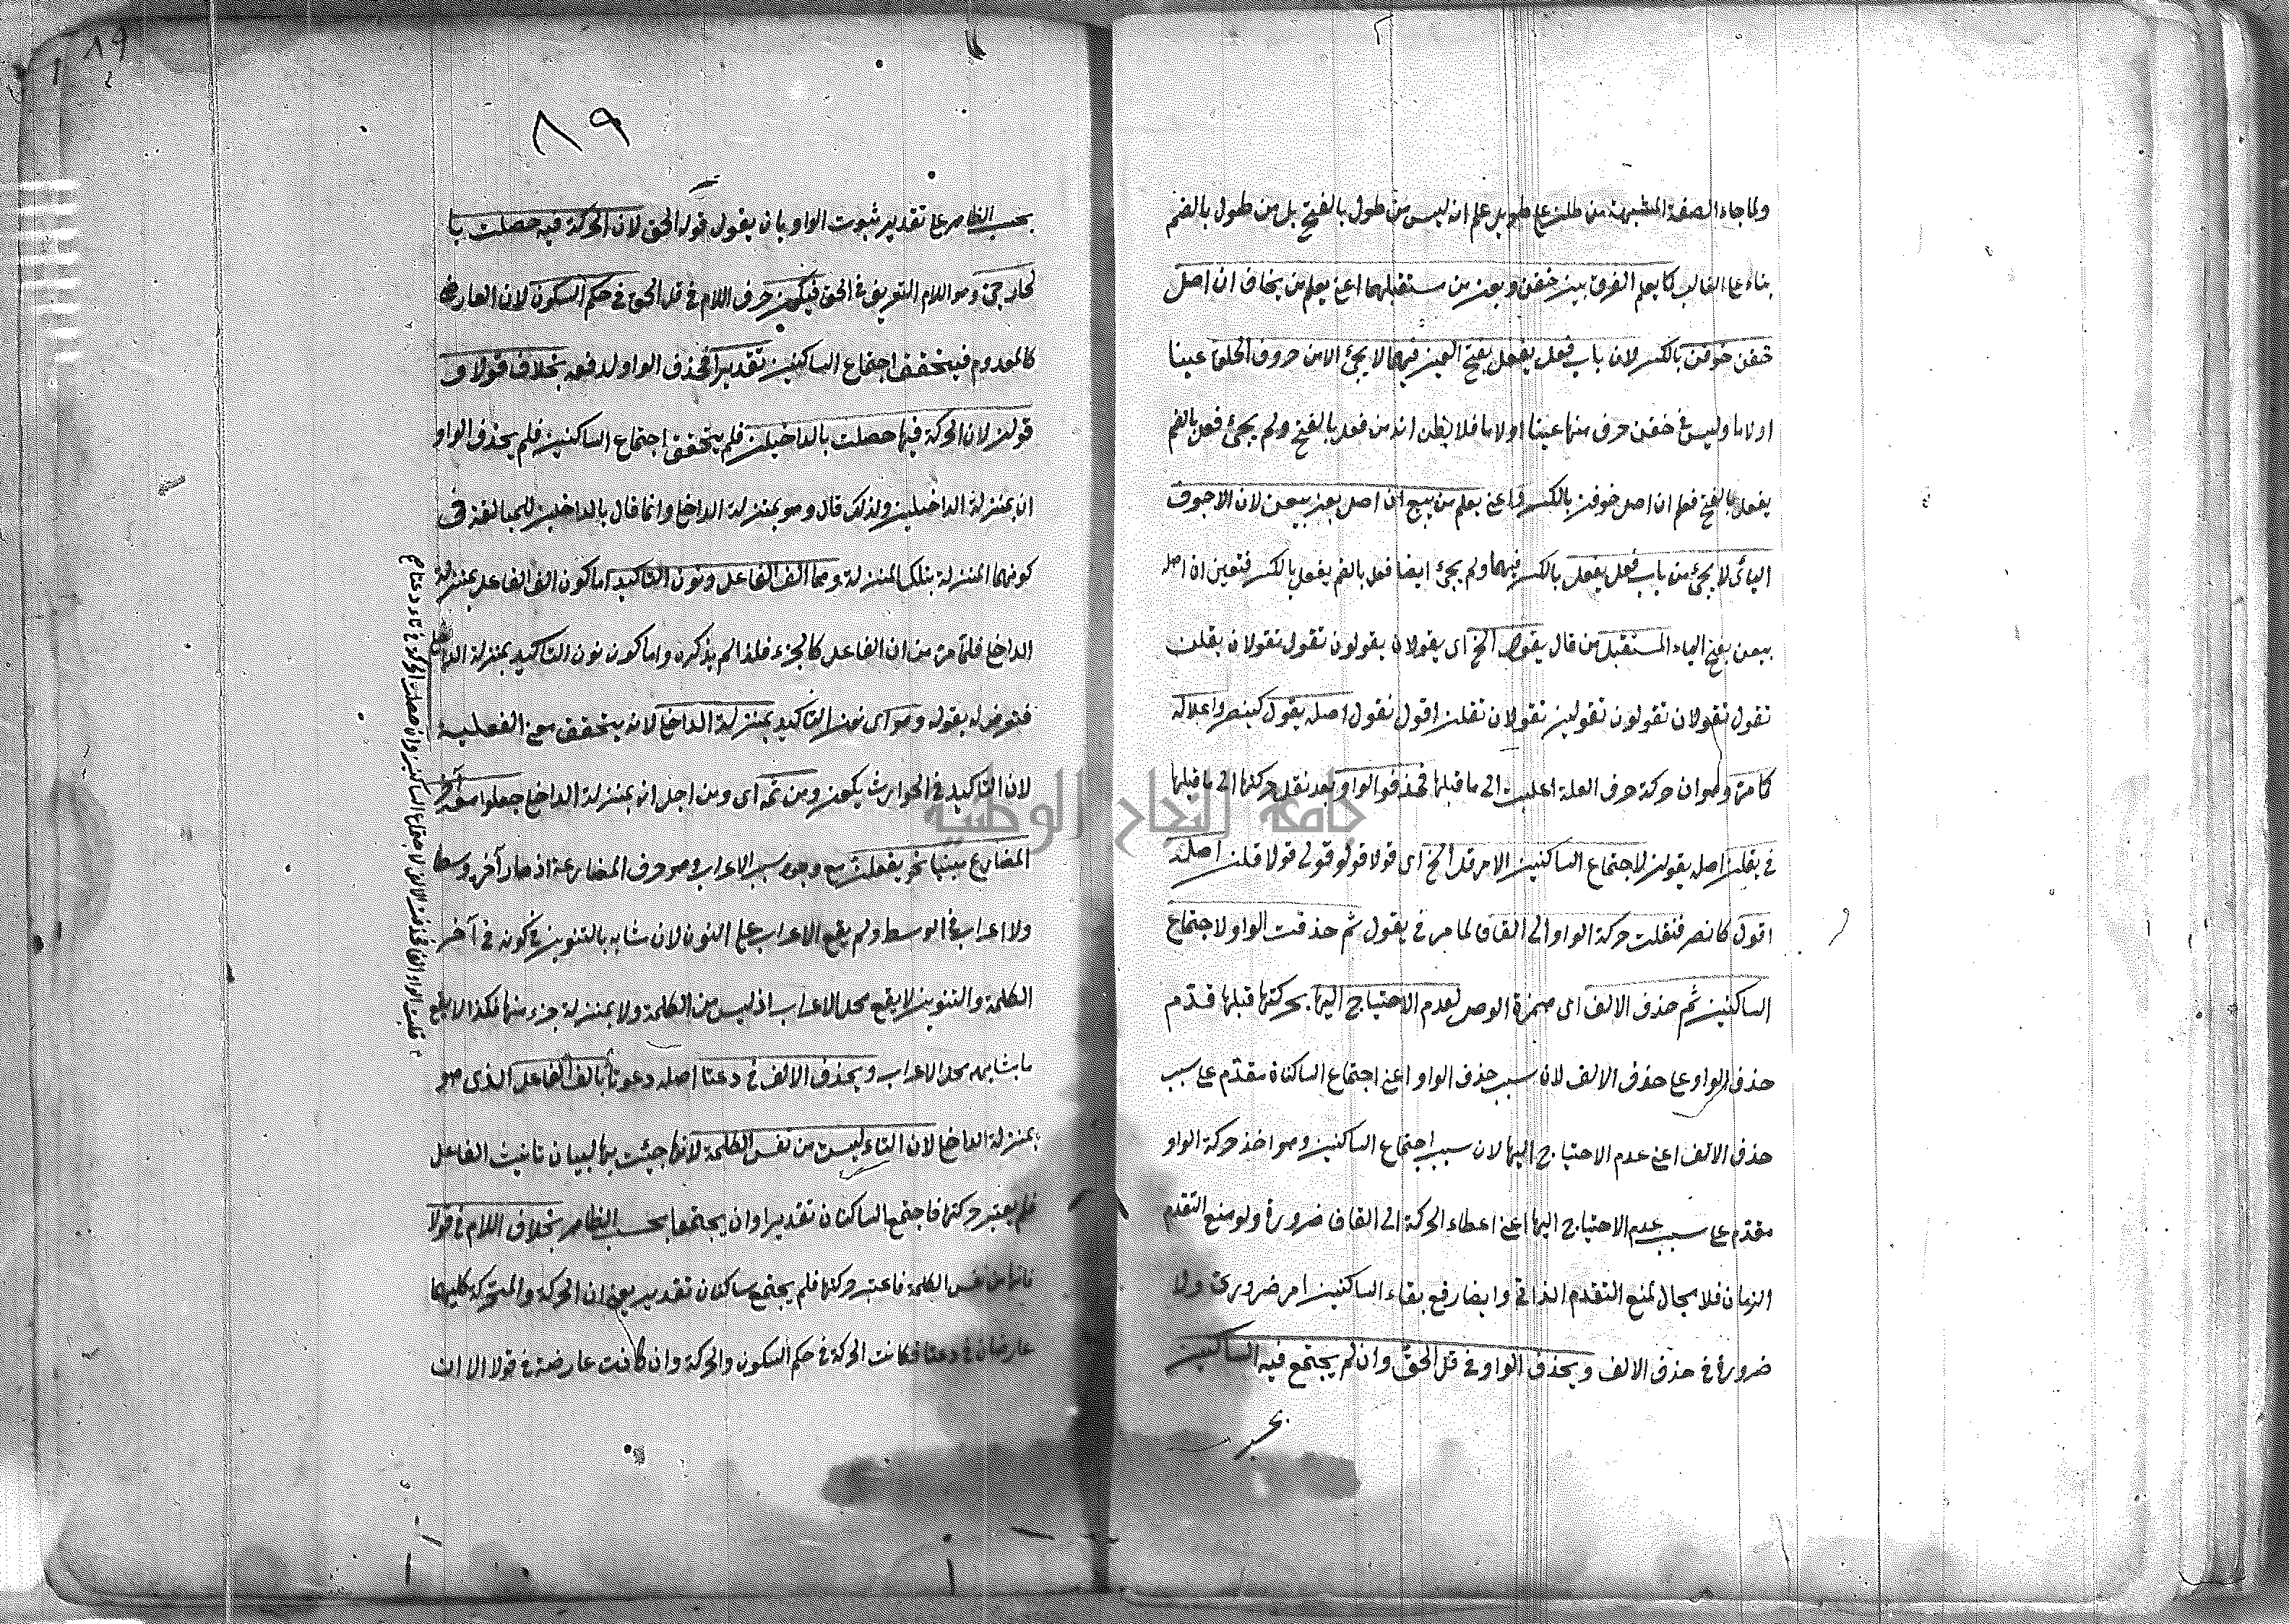 ولما جاء الصفة المشبهة من طلن على طويل علم انه ليس من طول بالفتح بل من طول بالضم
بناء على الغالب كما يعلم الفرق بين خفن وبعن من مستقبلهما اعنى يعلم من يخاف ان اصل
خفن خوفن بالكسر لان باب فعل يفعل بفتح العين فيهما لا يجئ الا من حروف الحلق عينا
او لاما وليس فى خفن حرف منها عينا او لاما فلا يظن انه من فعل بالفتح ولم يجئ فعل بالضم
يفعل بالفتح فعلم ان اصل خوفن بالكسر واعنى يعلم من يبيع ان اصل بعن بيعن لان الاجوف
اليائى لا يجئ من باب فعل يفعل بالكسر فيهما ولم يجئ ايضا فعل بالضم يفعل بالكسر فتعين ان اصله
بيعن بفتح الياء المستقبل من قال يقول الخ اى يقولان يقولون تقول تقولان يقلن
تقول تقولان تقولون تقولين تقولان تقلن اقول نقول اصله يقول كينصر واعلاله
كما مر وهو ان حركة حرف العلة الى ما قبلها فحذفو الواو بعد نقل حركتها الى ما قبلها
فى يقلن اصله يقولن لاجتماع الساكنين الامر قل الخ اى قولا قولو قولى قولا قلن اصله
اقول كانصر فنقلت حركة الواو الى القاف لما مر فى يقول ثم حذفت الواو لاجتماع
الساكنين ثم حذف الالف اى همزة الوصل لعدم الاحتياج اليها بحركتها قبلها قدم
حذف الواو على حذف الالف لان سبب حذف الواو اعنى اجتماع الساكناة مقدم على سبب
حذف الالف اعنى عدم الاحتياج اليها لان سبب اجتماع الساكنين وهو اخذ حركة الواو
مقدم على سبب عدم الاحتياج اليها اعنى اعطاء الحركة الى القاف ضرورة ولو منع التقدم
الزمان فلا مجال لمنع التقدم الذاتى وايضا رفع بقاء الساكنين امر ضرورى ولا
ضرورة فى حذف الالف ويحذف الواو فى قل الحق وان لم يجتمع فيه الساكنين
بحسب
٨٩
٨٩
بحسب الظاهر على تقدير ثبوت الواو بان يقول قول الحق لان الحركة فيه حصلت با
لخارجى وهو اللام التعريف فى الحق فيكون حرف اللام فى قل الحق فى حكم السكون لان العارض
كالمعدوم فيتحقق اجتماع الساكنين تقديرا فحذف الواو لدفعه بخلاف قولا و
قولن لان الحركة فيها حصلت بالداخيلين فلم يتحقق اجتماع الساكنين فلم يحذف الواو
ان بمنزلة الداخيلين ولذلك قال وهو بمنزلة الداخل وانما قال بالداخلين للمبالغة فى
كونهما المنزلة بتلك المنزلة وهما الف الفاعل ونون التاكيد اما كون الف الفاعل بمنزلة
الداخل فلما مر من ان الفاعل كالجزء فلذا لم يذكره واما كون نون التاكيد بمنزلة الداخل
فتعرض له بقوله وهو اى نون التاكيد بمنزلة الداخل لانه يتحقق معنى الفعلية
لان التاكيد فى يكون ومن ثمه اى ومن اجل انه بمنزلة الداخل جعلوا معه آخر
المضارع مبنيا نحو يفعلن مع وجود سبب الاعراب وهو حرف المضارعة اذ صار آخره وسطا
ولا اعراب فى الوسط ولم يقع الاعراب على النون لان شابه بالتنوين فى كونه فى آخر
الكلمة والتنوين لا يقع محل الاعراب اذ ليس من الكلمة ولا بمنزلة جزء منها فكذا لا يقع
ما يشابهه محل الاعراب ويحذف الالف فى دعتا اصله دعوتا بالف الفاعل الذى هو
بمنزلة الداخل لان التاء ليست من نفس الكلمة لانها جيئت بها لبيان تانيث الفاعل
فلم يعتبر حركتها فاجتمع الساكنان تقديرا وان يجتمعا بحسب الظاهر بخلاف اللام فى قولا
فانها من نفس الكلمة فاعتبر حركتها فلم يجتمع ساكنان تقدير يعنى ان الحركة والمتحركة كليهما
عارضان فى دعتا فكانت الحركة فى حكم السكون والحركة وان كانت عارضة فى قولا الا ان
قلبت الواو الفا فحذفت الالف لاجتماع الساكنين وان حصلت الحركة فى تاء دعتا
جامعة النجاح الوطنية